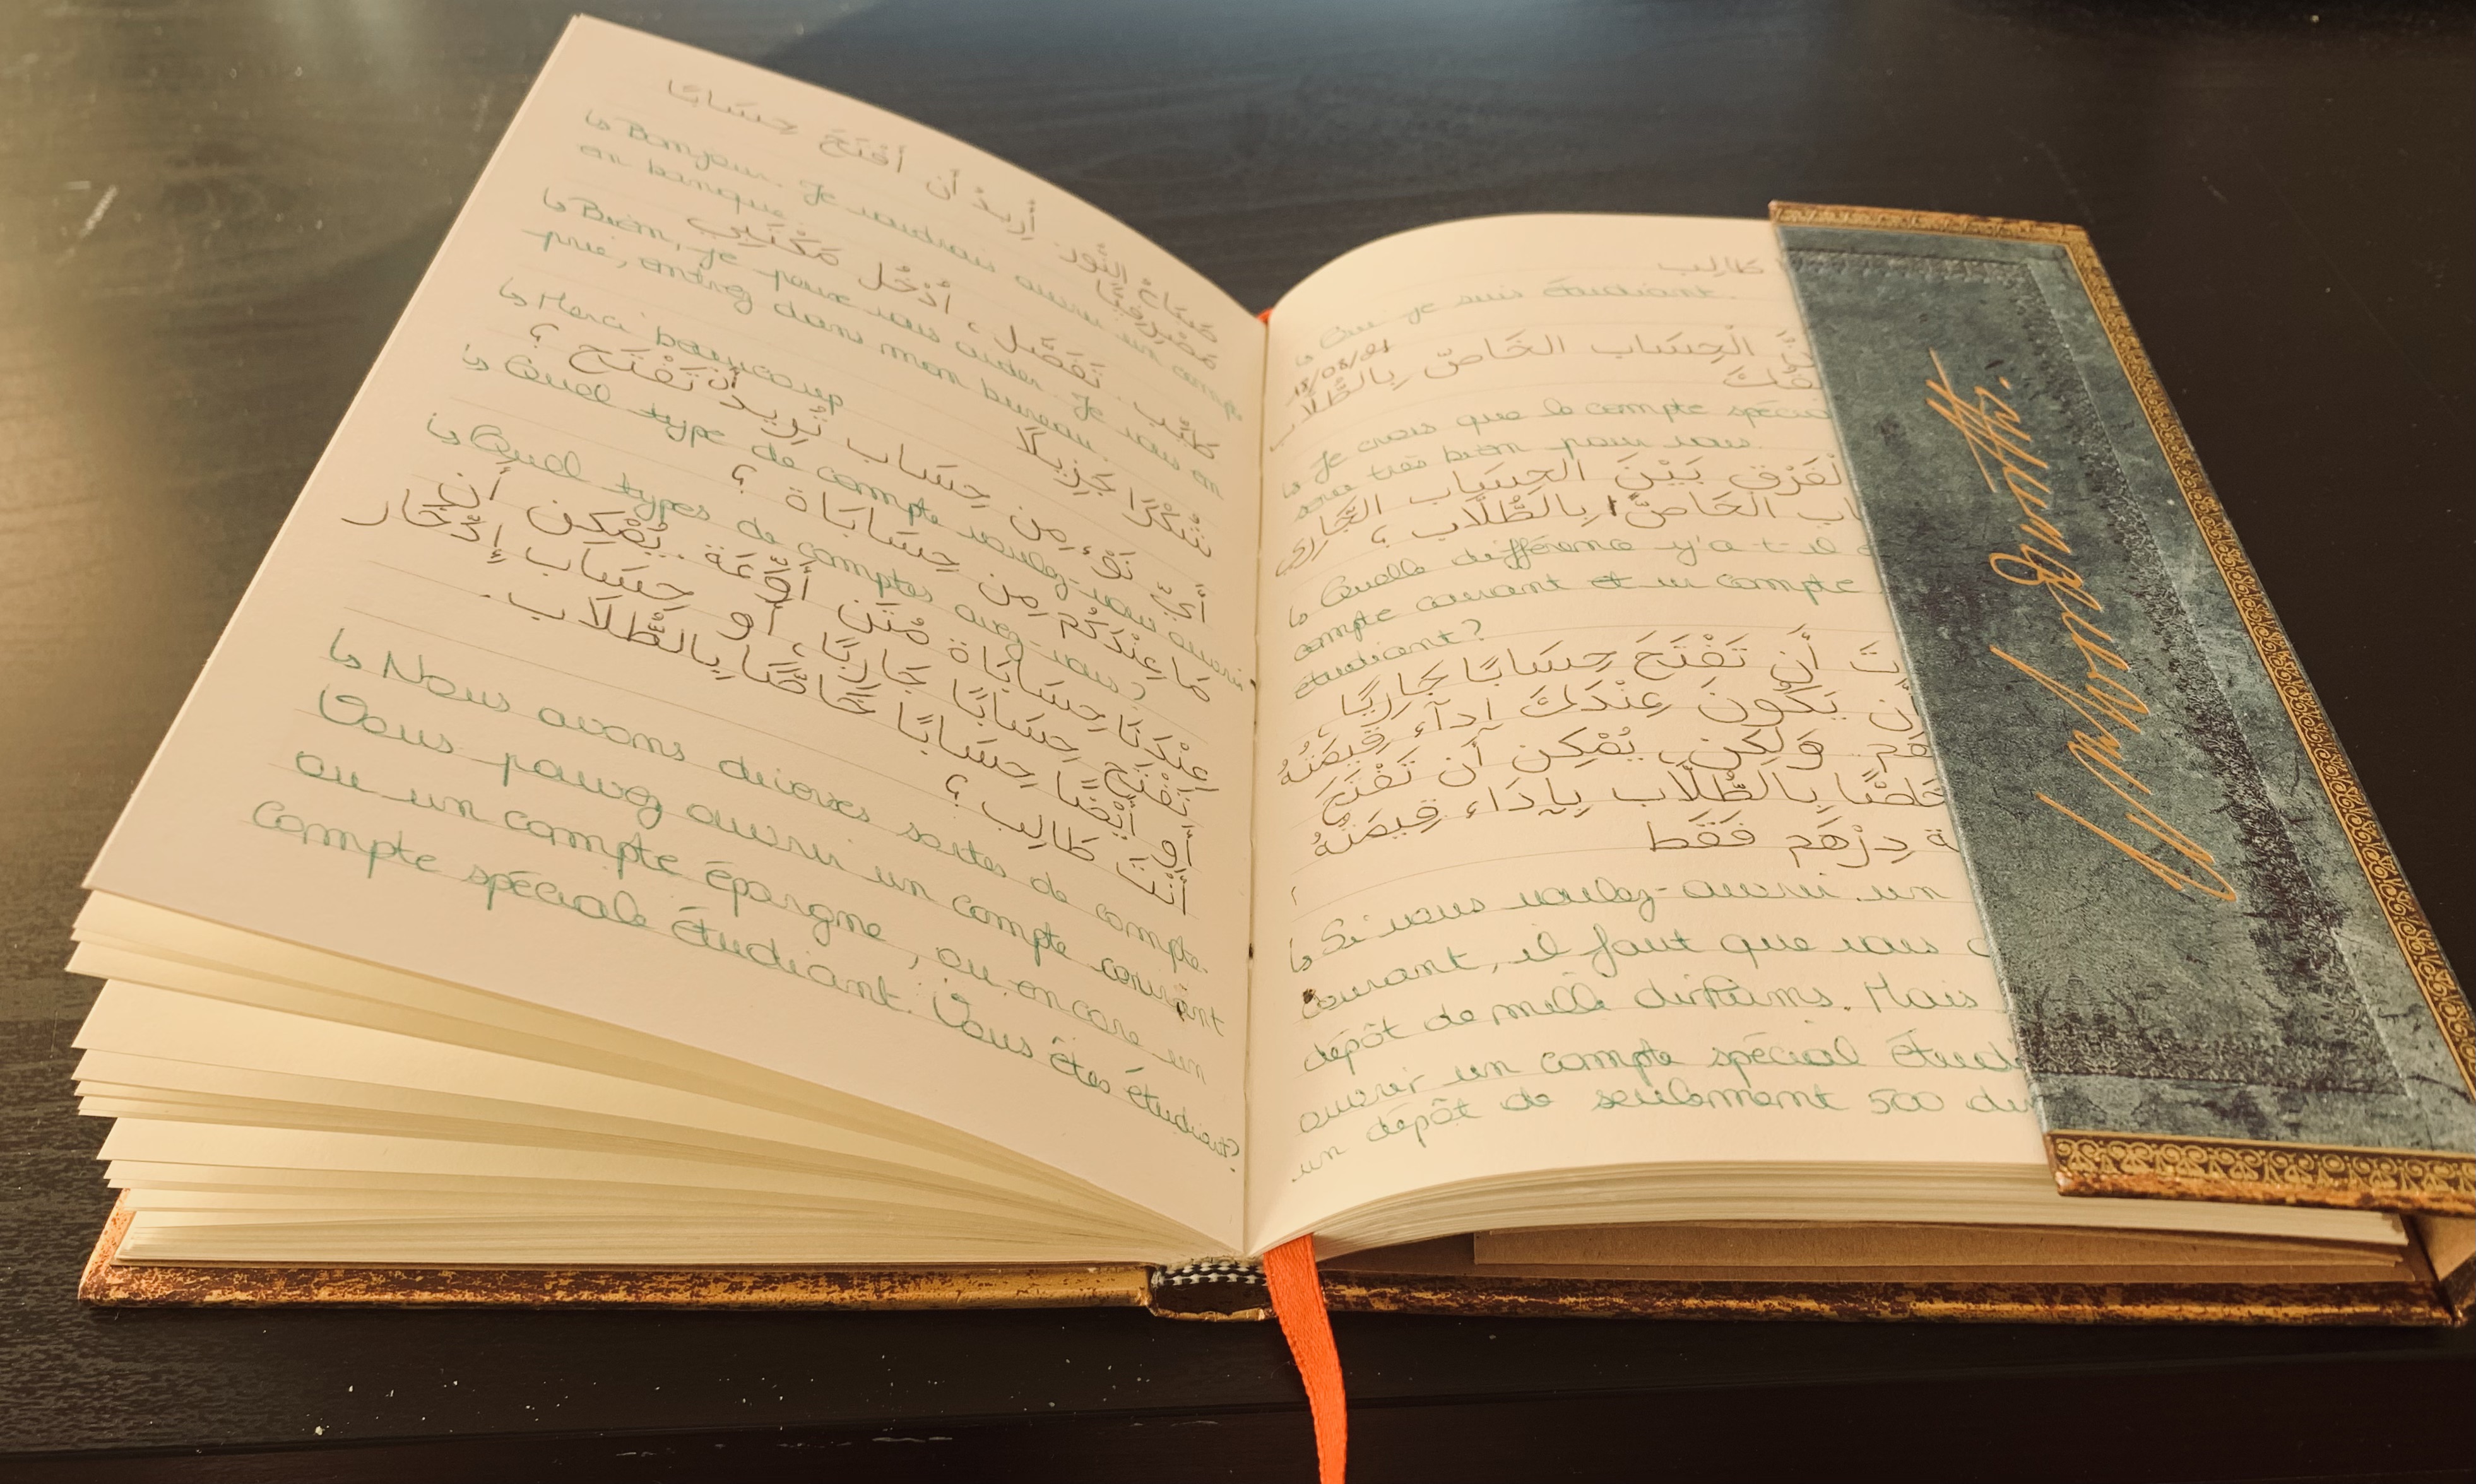 صَبَاحُ النُّور. أُرِيدُ أَن أَفْتَحَ حِسَابًا
مَصْرِفِيًّا
↳ Bonjour. Je voudrais ouvrir un compte
en banque.
طَيِّب. تَفَضَّل، اُدْخُل مَكْتَبِي
↳ Bien, je peux vous aider. Je vous en
prie, entrez dans mon bureau.
شُكْرًا جَزِيلًا
↳ Merci beaucoup
أَيّ نَوْءٍ مِن حِسَاب تُرِيد أَن تَفْتَح ؟
↳ Quel type de compte voulez-vous ouvrir
مَا عِنْدَكُم مِن حِسَابَاة ؟
↳ Quel types de comptes avez-vous?
عِنْدَنَا حِسَابَاة مُتَن أَوِّعَة. يُمْكِن أَن
تَفْتَح حِسَابًا جَارِيًا، أَو حِسَاب إِدِّخَار
أَو أَيْضًا حِسَابًا خَاصًّا بِالطُّلَاب.
أَنْتَ طَالِب ؟
↳ Nous avons divers sortes de compte.
Vous pouvez ouvrir un compte courant
ou un compte épargne, ou encore un
compte spéciale étudiant. Vous êtes étudiant?
طَالِب
↳ Oui je suis étudiant.
الْحِسَاب الخَاصّ بِالطُّلَّاب
18/08/21
↳ Je crois que le compte spécial
sera très bien pour vous.
لْفَرْق بَيْنَ الحِسَاب التَّجَارِي
اب الخَاصّ بِالطُّلَّاب ؟
↳ Quelle différence y'a-t-il
compte courant et un compte
étudiant?
تَ أَن تَفْتَحَ حِسَابًا جَارِيًا،
أَن يَكُونَ عِنْدَكَ إدآء قِيمَتُهُ
هَم وَلَكِن يُمْكِن أَن تَفْتَحَ
خَاصًّا بِالطُّلَّاب بِإِدَاء قِيمَتُهُ
ة دِرْهَم فَقَط
↳ Si vous voulez-ouvrir un
courant, il faut que vous
dépôt de mille dirhams. Mais
ouvrir un compte spécial étudi
un dépôt de seulement 500 di